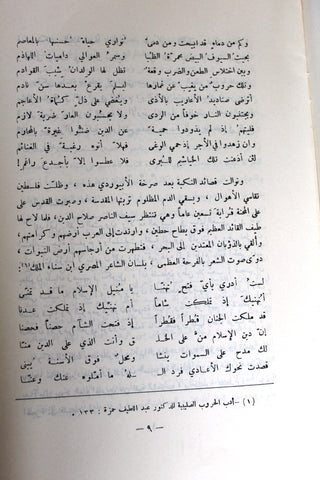 وكم من دماء قد ابيحت ومن دمى تواري حياء حسنها بالمعاصم
بحيث السيوف البيض محمرّة الظبا وسمر العوالي داميات اللهاذم
وبين اختلاس الطعن والضرب وقفة تظل لها الولدان شيب القوادم
وتلك حروب من يغب عن غمارها ليسلم يقرع بعدها سن نادم
أرى صناديد الأعاريب بالأذى ويغضي على ذل كماة الأعاجم
ويجتنبون النار خوفاً من الردى ولا يحسبون العار ضربة لازم
فليتهم إذ لم يذودوا حمية عن الدين ضنوا غيرة بالمحارم
وإن زهدوا في الأجر إذ حمي الوغى فهلا أتوه رغبة في الغنائم
لئن أذعنت تلك الخياشيم للبرى فلا عطسوا إلا بأجدع راغم!
وتوالت قصائد النكبة بعد صرخة الأبيوردي هذه، وظلت فلسطين
تقاسي الأهوال، ويسقي الدم المظلوم تربتها المقدسة، وصبرت القدس على
المحنة قرابة تسعين عاماً وهي تنتظر سيف الناصر صلاح الدين، فلما لاح لها
طيف القائد العظيم فوق بطاح حطين، وارتدت إلى العرب أرضهم وكرامتهم،
وألقي بالذؤبان المعتدين إلى البحر، فتطهرت من أرجاسهم أرض النبوات،
دوى صوت الشعر بالفرحة العظمى، بلسان الشاعر المصري ابن سناء الملك(١):
لست أدري بأي فتح تهنا يا منيل الإسلام ما قد تمنى
أنهنيك إذ تملكت شاماً أم نهنيك إذ تملكت عدنا
قد ملكت الجنان قطراً فقطراً إذ فتحت الشآم حصناً فحصنا
إن دين الإسلام منّ على الخلـ ق وأنت الذي على الدين منا
لك مدح على السموات ينشا ومحل فوق الأسنة يبنى
قصدت نحوك الأعادي فرد الـ ـله ما أملوه عنك وعنا
(١) – أدب الحروب الصليبية للدكتور عبد اللطيف حمزة : ١٣٣ .
– ٩ –